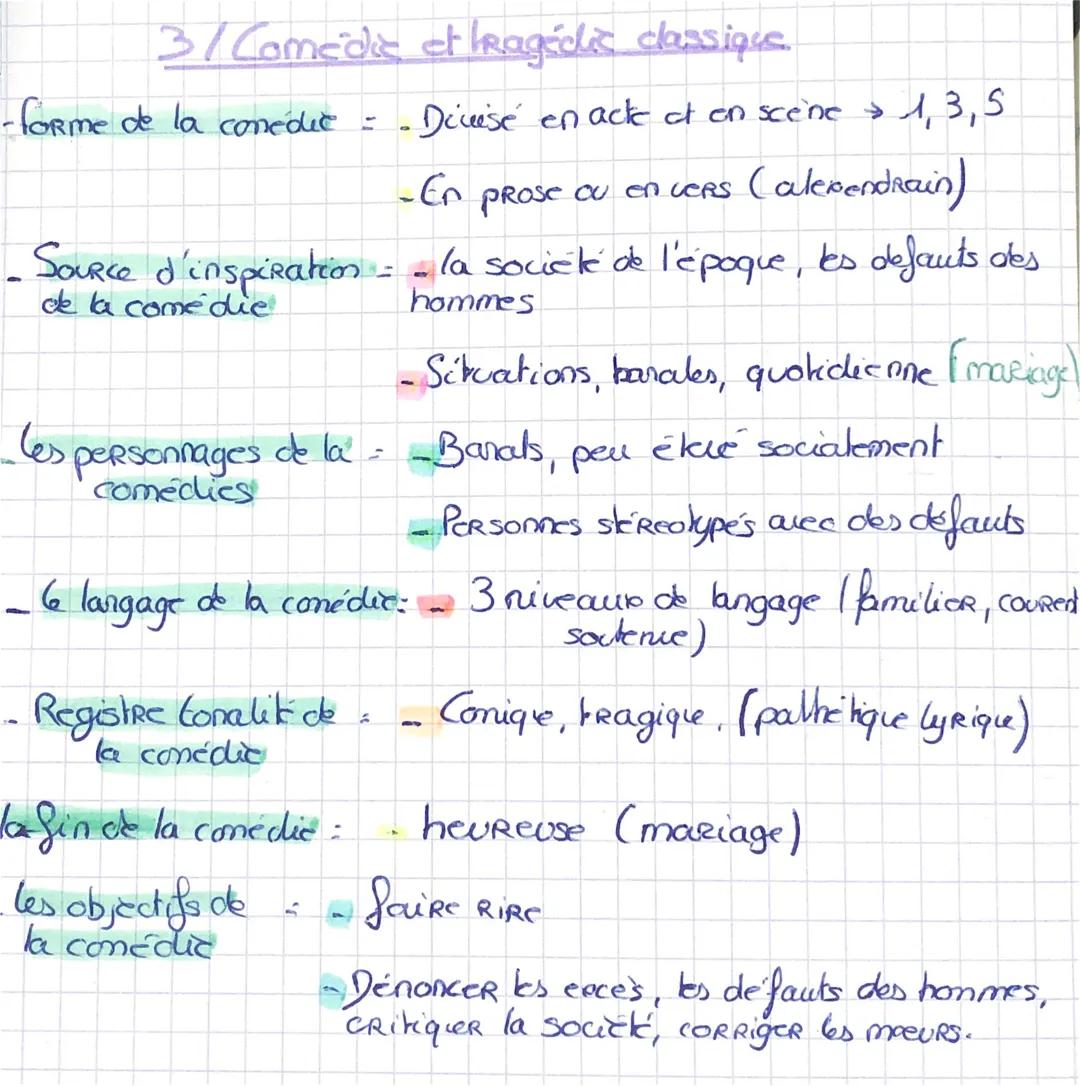 3/ Comédie et tragédie classique
- forme de la comédie = - Divisé en acte et en scène → 1, 3, 5
- En prose ou en vers (alexendrain)
- Source d'inspiration = - la société de l'époque, les defauts des
de la comédie hommes
- Situations, banales, quotidienne (mariage)
- les personnages de la = - Banals, peu élevé socialement
comédies
- Personnes stéréotypés avec des défauts
- le langage de la comédie: - 3 niveaux de langage (familier, courent
soutenue)
- Registre tonalité de = - Comique, tragique. (pathétique lyrique)
la comédie
la fin de la comédie : - heureuse (mariage)
les objectifs de = - faire rire
la comédie
- Dénoncer les excès, les défauts des hommes,
critiquer la société, corriger les moeurs.